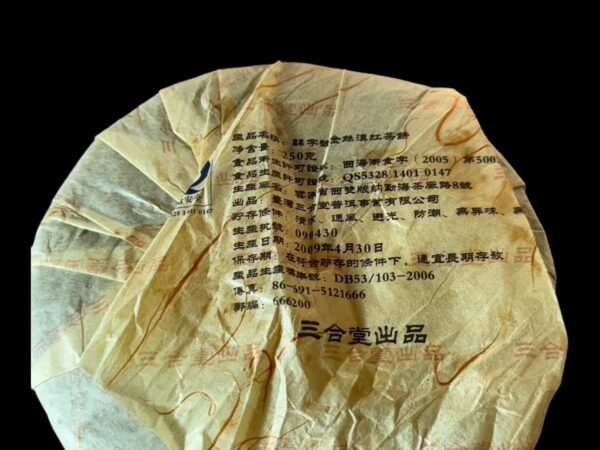 產品名稱：囍字號金絲滇紅茶餅
淨含量：250克
食品衛生許可證：西海衛食字（2005）第500
食品生産許可證號：QS5328 1401 0147
生産廠名：雲南省西雙版納勐海茶廠路8號
出品：臺灣三合堂普洱事業有限公司
貯存條件：清潔、通風、避光、防潮、無異味、無
生産批號：090430
生産日期：2009年4月30日
保存期：在符合貯存的條件下，適宜長期存放
產品生産標準號：DB53/103-2006
傳真：86-691-5121666
郵編：666200
三合堂出品
安全
5328 1401 0147
三合堂出品
三合堂出品
三合堂